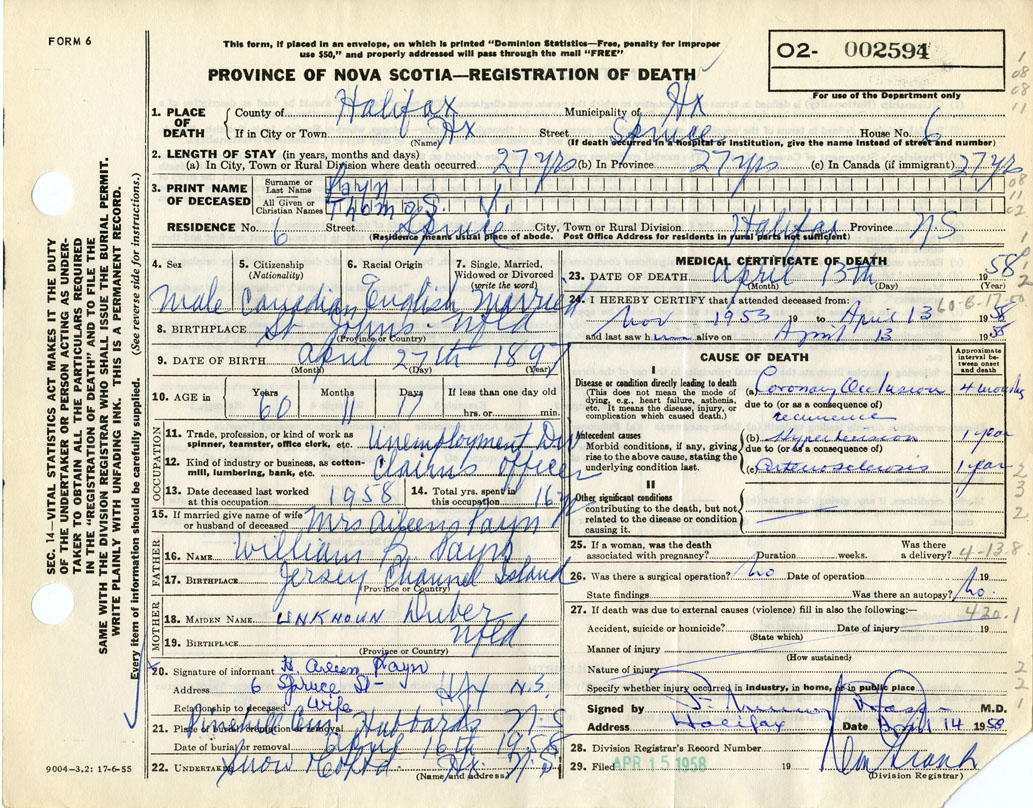 FORM 6
This form, if placed in an envelope, on which is printed "Dominion Statistics—Free, penalty for improper
use $50," and properly addressed will pass through the mail "FREE"
O2- 002594
For use of the Department only
PROVINCE OF NOVA SCOTIA—REGISTRATION OF DEATH
1. PLACE OF DEATH
County of Halifax Municipality of Hx
If in City or Town Hx Street Spruce House No. 6
(Name) (If death occurred in a hospital or institution, give the name instead of street and number)
2. LENGTH OF STAY (in years, months and days)
(a) In City, Town or Rural Division where death occurred 27 yrs (b) In Province 27 yrs (c) In Canada (if immigrant) 27 yrs
3. PRINT NAME OF DECEASED
Surname or Last Name Payn
All Given or Christian Names Thomas
RESIDENCE No. 6 Street Spruce City, Town or Rural Division Halifax Province N.S
(Residence means usual place of abode. Post Office Address for residents in rural parts not sufficient)
4. Sex
Male
5. Citizenship (Nationality)
Canadian
6. Racial Origin
English
7. Single, Married, Widowed or Divorced (write the word)
Married
8. BIRTHPLACE St Johns. Nfld
(Province or Country)
9. DATE OF BIRTH April 27th 1897
(Month) (Day) (Year)
10. AGE in Years Months Days If less than one day old
60 11 17 hrs. or min.
OCCUPATION
11. Trade, profession, or kind of work as
spinner, teamster, office clerk, etc. Unemployment
12. Kind of industry or business, as cotton-
mill, lumbering, bank, etc. Claims Officer
13. Date deceased last worked at this occupation 1958
14. Total yrs. spent in this occupation 16 yrs
15. If married give name of wife
or husband of deceased Mrs Aileen Payn
FATHER
16. NAME William Payn
17. BIRTHPLACE Jersey Channel Island
(Province or Country)
MOTHER
18. MAIDEN NAME UNKNOWN
19. BIRTHPLACE Nfld
(Province or Country)
20. Signature of informant H. Aileen Payn
Address 6 Spruce St - Hfx N.S.
Relationship to deceased Wife
21. Place of burial, cremation or removal Pinehill Cem. Hubbards N.S
Date of burial or removal April 16th 1958
22. UNDERTAKER Snow Co Ltd - Hx. N.S
(Name and address)
MEDICAL CERTIFICATE OF DEATH
23. DATE OF DEATH April 13th 1958
(Month) (Day) (Year)
24. I HEREBY CERTIFY that I attended deceased from:
Nov - 1953 19 to April 13 1958
and last saw h alive on April 13 19
CAUSE OF DEATH
Approximate interval between onset and death
I
Disease or condition directly leading to death
(This does not mean the mode of
dying, e.g., heart failure, asthenia,
etc. It means the disease, injury, or
complication which caused death.)
(a) Coronary Occlusion 4 months
due to (or as a consequence of)
recurrence
Antecedent causes
Morbid conditions, if any, giving
rise to the above cause, stating the
underlying condition last.
(b) Hypertension 1 year
due to (or as a consequence of)
(c) Arteriosclerosis 1 year
II
Other significant conditions
contributing to the death, but not
related to the disease or condition
causing it.
25. If a woman, was the death
associated with pregnancy? Duration weeks. Was there a delivery?
4-13-8
26. Was there a surgical operation? No Date of operation 19
State findings Was there an autopsy? No.
27. If death was due to external causes (violence) fill in also the following:—
420.1
Accident, suicide or homicide? Date of injury 19
(State which)
Manner of injury
(How sustained)
Nature of injury
Specify whether injury occurred in industry, in home, or in public place
Signed by M.D.
Address Halifax Date April 14 1958
28. Division Registrar's Record Number
29. Filed APR 15 1958 19
(Division Registrar)
9004—3.2: 17-6-55
SEC. 14—VITAL STATISTICS ACT MAKES IT THE DUTY
OF THE UNDERTAKER OR PERSON ACTING AS UNDER-
TAKER TO OBTAIN ALL THE PARTICULARS REQUIRED
IN THE "REGISTRATION OF DEATH" AND TO FILE THE
SAME WITH THE DIVISION REGISTRAR WHO SHALL ISSUE THE BURIAL PERMIT.
WRITE PLAINLY WITH UNFADING INK. THIS IS A PERMANENT RECORD.
Every item of information should be carefully supplied. (See reverse side for instructions.)